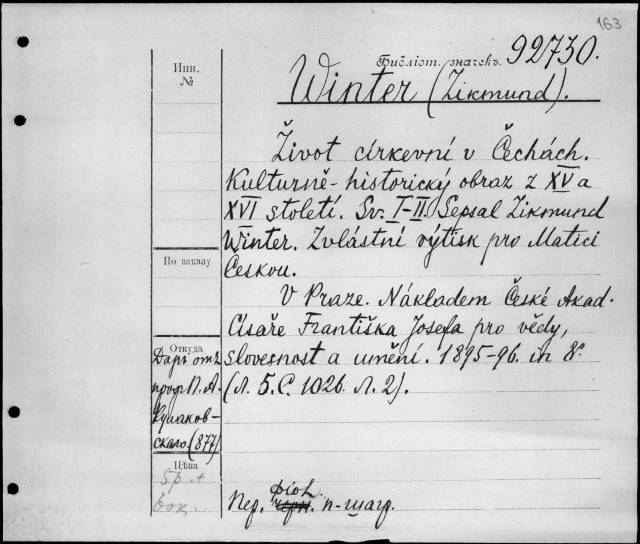 163
Библіот. значекъ. 92730.
Инв. №
Winter (Zikmund).
Život církevní v Čechách.
Kulturně-historický obraz z XV a
XVI století. Sv. I-II. Sepsal Zikmund
Winter. Zvláštní výtisk pro Matici
Českou.
По заказу
V Praze. Nákladem České Akad.
Císaře Františka Josefa pro vědy,
slovesnost a umění. 1895-96. in 8º
(Л. 5. С. 1026. Л. 2).
Откуда
Даръ отъ
проф. П. А.
Кулаков-
скаго. (877)
Цѣна
5р. +
Пер. фіол. п-шагр.